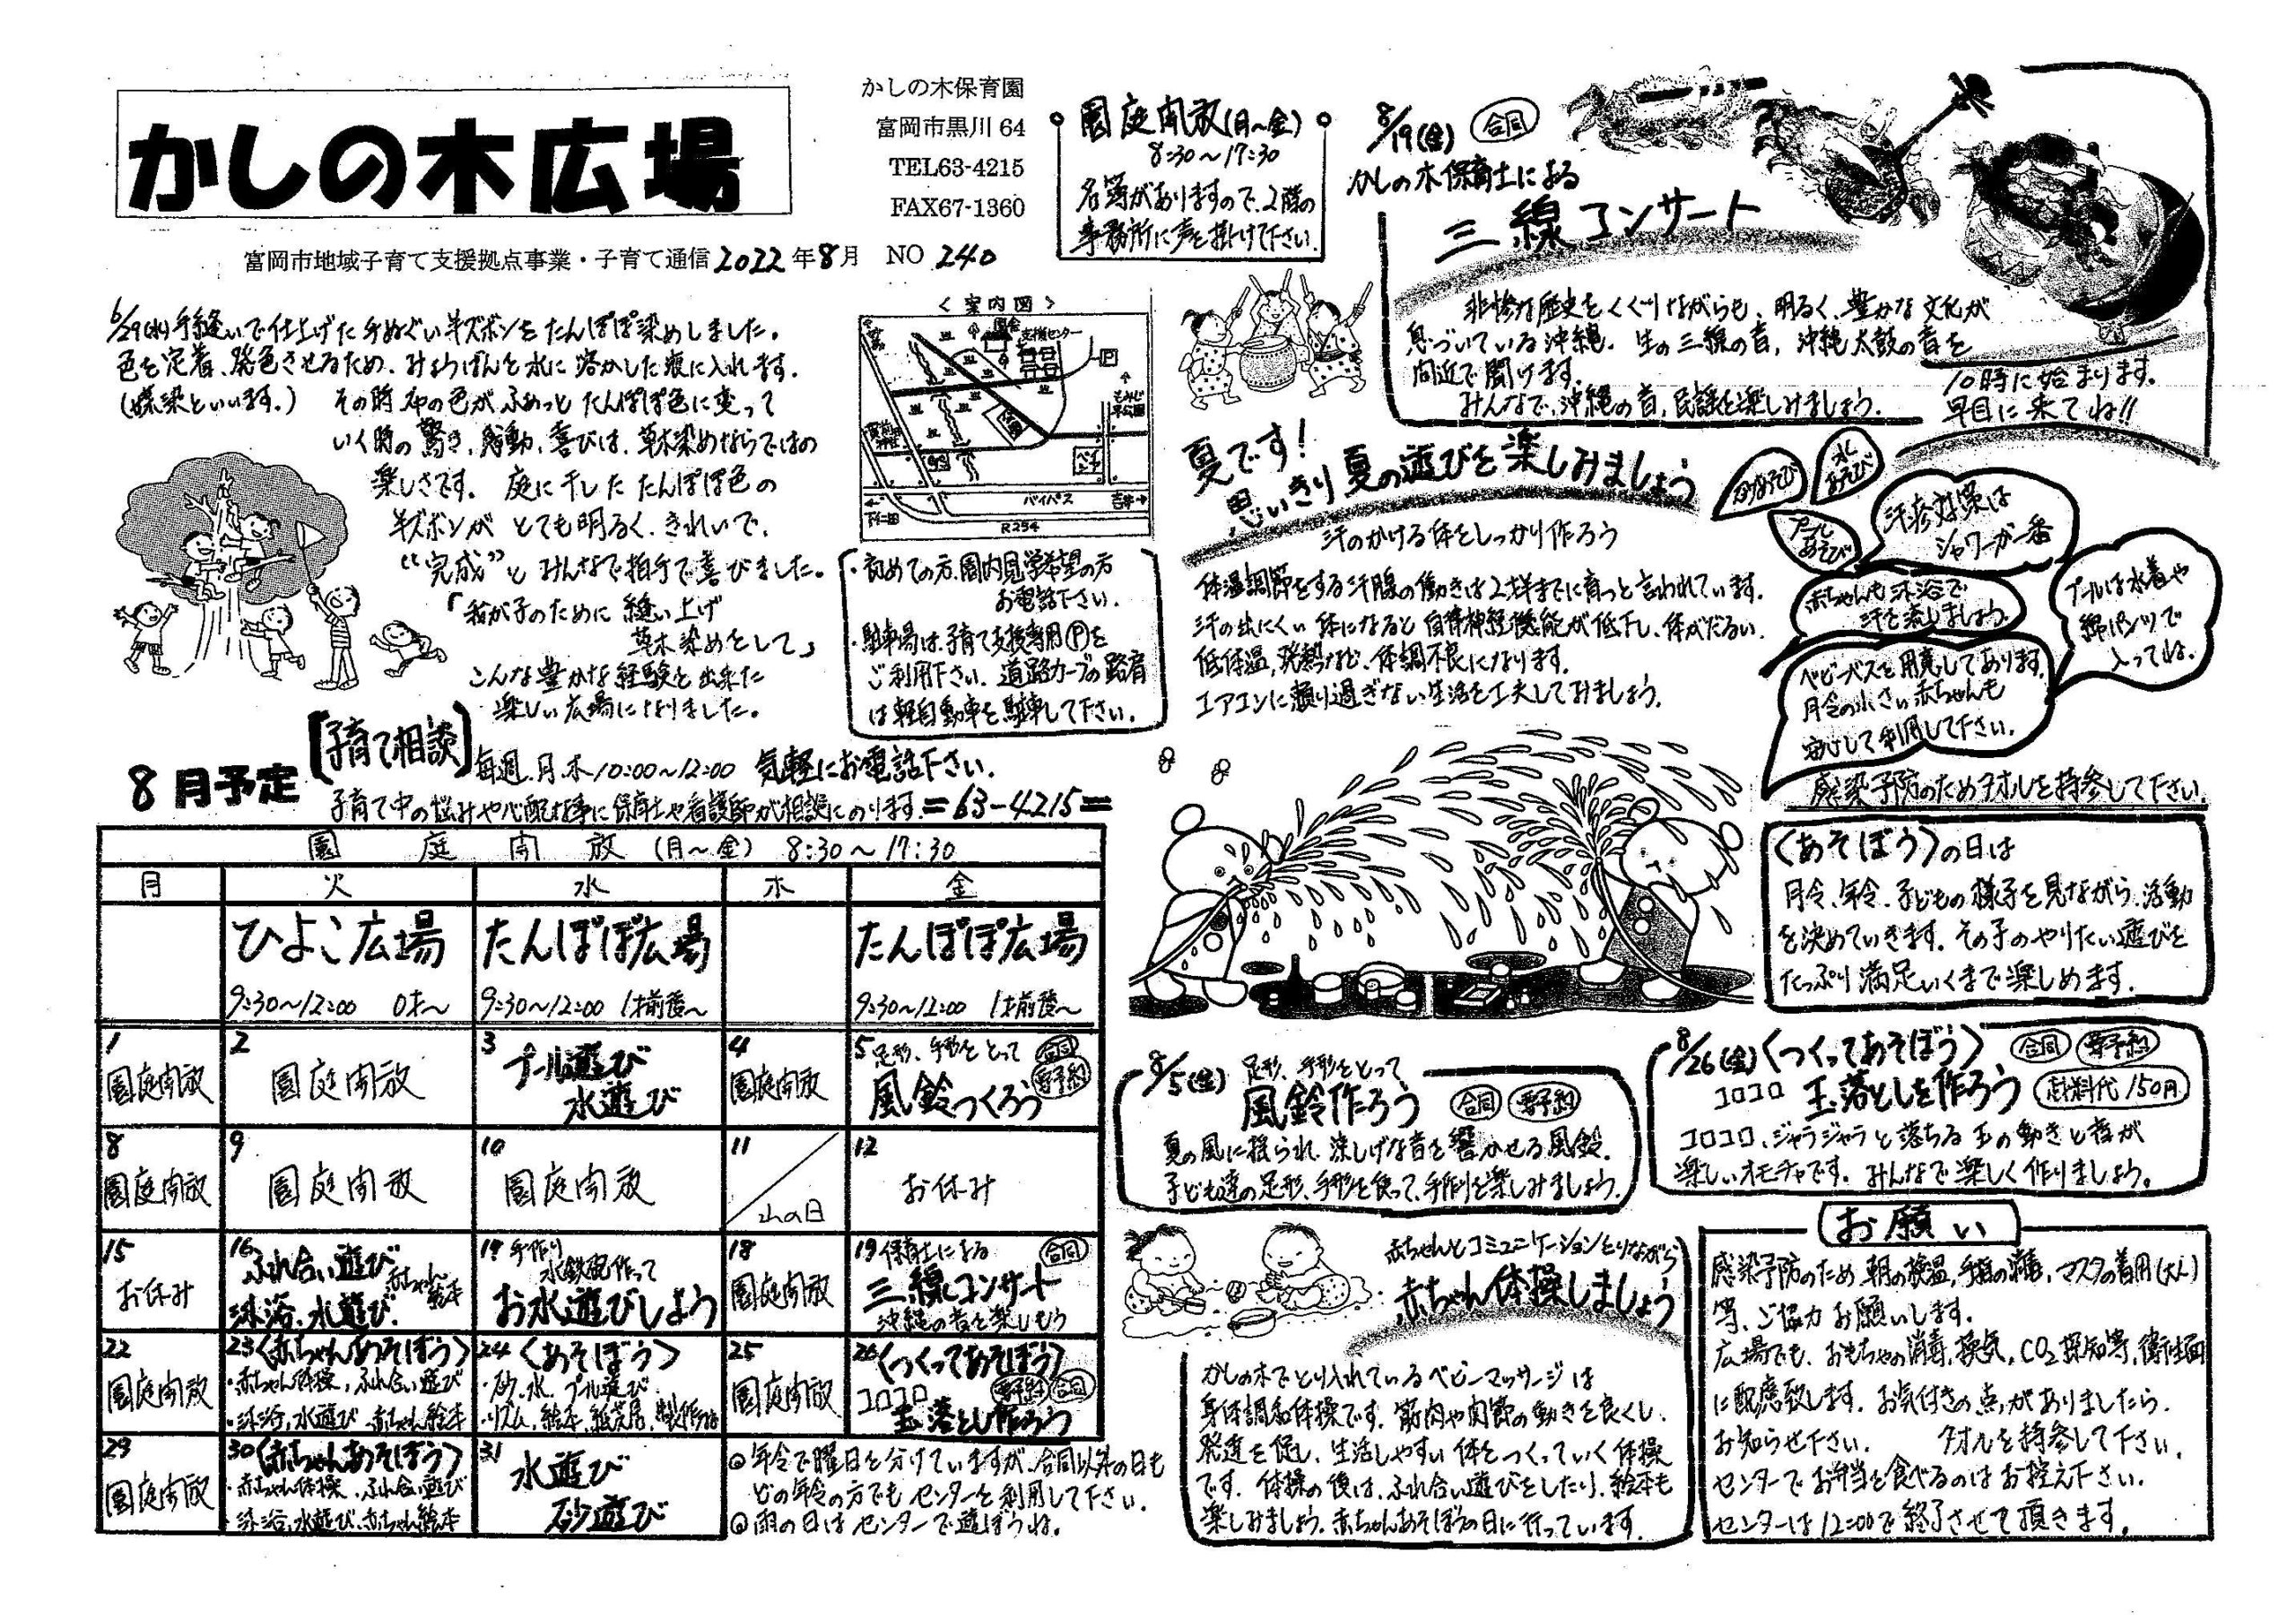 かしの木広場
富岡市地域子育て支援拠点事業・子育て通信 2022年8月 NO 240
かしの木保育園
富岡市黒川 64
TEL63-4215
FAX67-1360
園庭開放(月~金)
8:30~17:30
名簿がありますので、2階の
事務所に声を掛けて下さい。
8/19(金) 合同
かしの木保育士による
三線コンサート
悲惨な歴史をくぐりながらも、明るく、豊かな文化が
息づいている沖縄。生の三線の音、沖縄太鼓の音を
間近で聞けます。
みんなで、沖縄の音、民謡を楽しみましょう。
10時に始まります。
早目に来てね!!
6/29(水)手縫いで仕上げた手ぬぐい半ズボンをたんぽぽ染めしました。
色を定着、発色させるため、みょうばんを水に溶かした液に入れます。
(媒染といいます。) その時布の色がふぁっとたんぽぽ色に変って
いく時の驚き、感動、喜びは、草木染めならではの
楽しさです。庭に干したたんぽぽ色の
半ズボンがとても明るく、きれいで、
“完成”とみんなで拍手で喜びました。
「我が子のために縫い上げ
草木染めをして」
こんな豊かな経験を出来た
楽しい広場になりました。
<案内図>
支援センター
P
バイパス
下仁田
吉井
R254
・初めての方、園内見学希望の方
お電話下さい。
・駐車場は、子育て支援専用Ⓟを
ご利用下さい。道路カーブの路肩
は軽自動車を駐車して下さい。
夏です!
思いきり夏の遊びを楽しみましょう
汗のかける体をしっかり作ろう
体温調節をする汗腺の働きは2才までに育つと言われています。
汗の出にくい体になると自律神経機能が低下し、体がだるい、
低体温、発熱など、体調不良になります。
エアコンに頼り過ぎない生活を工夫してみましょう。
水あそび
プールあそび
汗疹対策は
シャワーが一番
赤ちゃんも沐浴で
汗を流しましょう。
プールは水着や
綿パンツで
入ってね。
ベビーバスを用意してあります。
月令の小さい赤ちゃんも
安心して利用して下さい。
感染予防のためタオルを持参して下さい。
8月予定
【子育て相談】毎週.月.木 10:00~12:00 気軽にお電話下さい。
子育て中の悩みや心配な事に保育士や看護師が相談にのります。=63-4215=
園庭開放(月~金) 8:30~17:30
月 火 水 木 金
ひよこ広場 たんぽぽ広場 たんぽぽ広場
9:30~12:00 0才~ 9:30~12:00 1才前後~ 9:30~12:00 1才前後~
1 園庭開放
2 園庭開放
3 プール遊び
水遊び
4 園庭開放
5 足形、手形をとって 合同
風鈴つくろう 要予約
8 園庭開放
9 園庭開放
10 園庭開放
11 山の日
12 お休み
15 お休み
16 ふれ合い遊び
赤ちゃん絵本
沐浴、水遊び
17 手作り
水鉄砲作って
お水遊びしよう
18 園庭開放
19 保育士による 合同
三線コンサート
沖縄の音を楽しもう
22 園庭開放
23〈赤ちゃんあそぼう〉
・赤ちゃん体操、ふれ合い遊び
・沐浴、水遊び、赤ちゃん絵本
24〈あそぼう〉
・砂、水、プール遊び
・リズム、絵本、紙芝居、製作など
25 園庭開放
26〈つくってあそぼう〉
コロコロ 要予約 合同
玉落とし作ろう
29 園庭開放
30〈赤ちゃんあそぼう〉
・赤ちゃん体操、ふれ合い遊び
・沐浴、水遊び、赤ちゃん絵本
31 水遊び
砂遊び
◎年令で曜日を分けていますが、合同以外の日も
どの年令の方でもセンターを利用して下さい。
◎雨の日はセンターで遊ぼうね。
〈あそぼう〉の日は
月令、年令、子どもの様子を見ながら、活動
を決めていきます。その子のやりたい遊びを
たっぷり満足いくまで楽しめます。
8/5(金) 足形、手形をとって
風鈴作ろう 合同 要予約
夏の風に揺られ、涼しげな音を響かせる風鈴。
子ども達の足形、手形を使って、手作りを楽しみましょう。
8/26(金)〈つくってあそぼう〉 合同 要予約
コロコロ 玉落としを作ろう 材料代 150円
コロコロ、ジャラジャラと落ちる玉の動きと音が
楽しいオモチャです。みんなで楽しく作りましょう。
赤ちゃんとコミュニケーションとりながら
赤ちゃん体操しましょう
かしの木でとり入れているベビーマッサージは
身体調和体操です。筋肉や関節の動きを良くし、
発達を促し、生活しやすい体をつくっていく体操
です。体操の後は、ふれ合い遊びをしたり、絵本も
楽しみましょう。赤ちゃんあそぼうの日に行っています。
お願い
感染予防のため、朝の検温、手指の消毒、マスクの着用(大人)
等、ご協力お願いします。
広場でも、おもちゃの消毒、換気、CO2探知等、衛生面
に配慮致します。お気付きの点がありましたら、
お知らせ下さい。 タオルを持参して下さい。
センターでお弁当を食べるのはお控え下さい。
センターは12:00で終了させて頂きます。